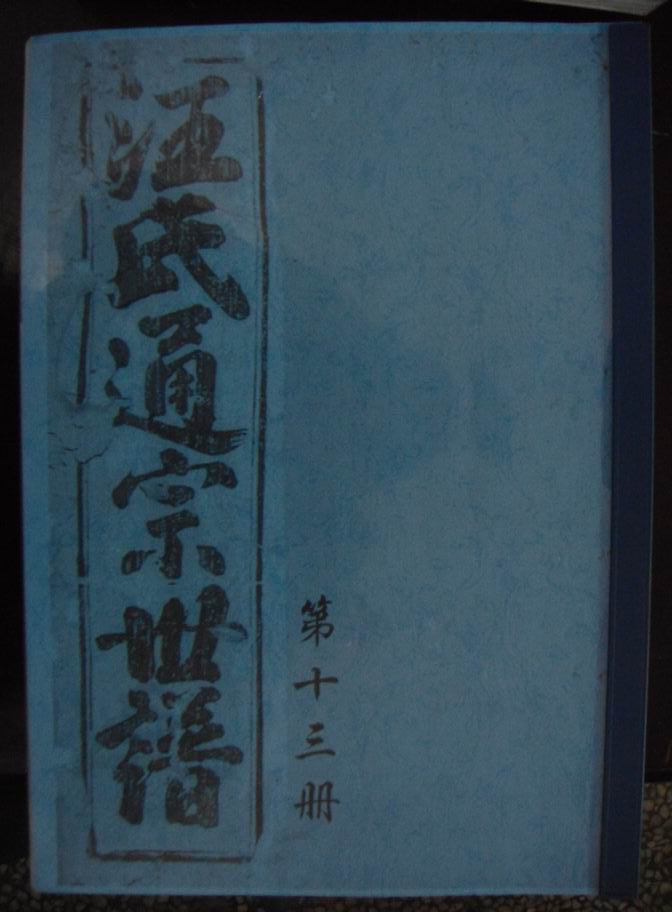 汪氏通宗世譜
第十三册